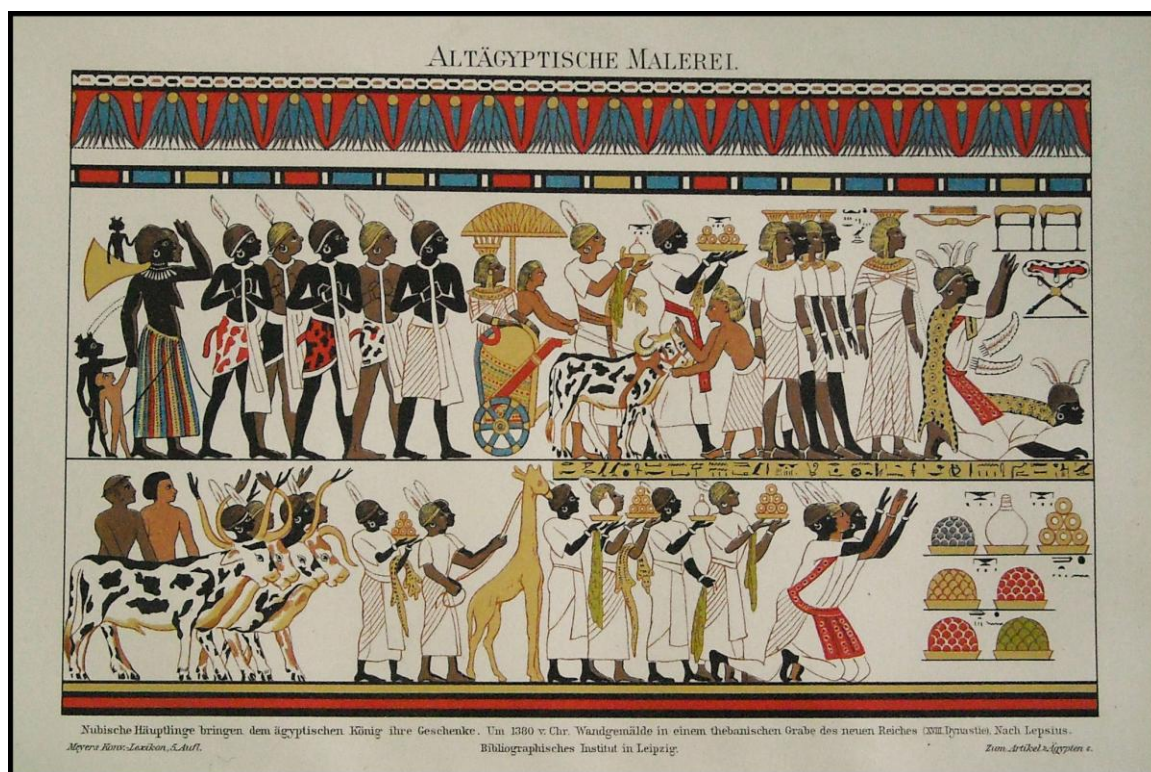 ALTÄGYPTISCHE MALEREI.
Nubische Häuptlinge bringen dem ägyptischen König ihre Geschenke. Um 1380 v. Chr. Wandgemälde in einem thebanischen Grabe des neuen Reiches (XVIII. Dynastie). Nach Lepsius.
Meyers Konv.-Lexikon, 5. Aufl.
Bibliographisches Institut in Leipzig.
Zum Artikel »Ägypten«.